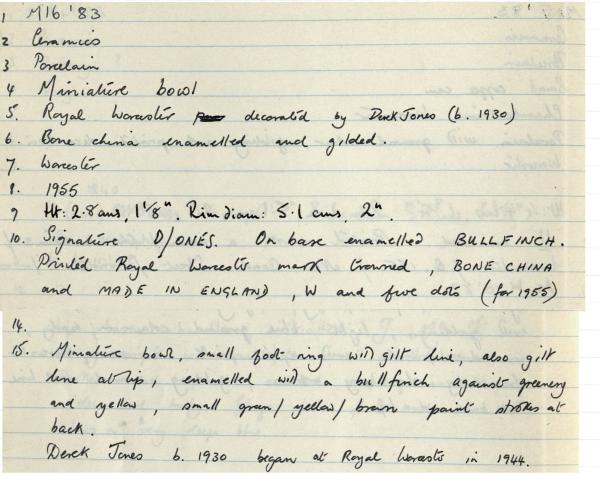 1 M16 '83
2 Ceramics
3 Porcelain
4 Miniature bowl
5. Royal Worcester decorated by Derek Jones (b. 1930)
6. Bone china enamelled and gilded.
7. Worcester
8. 1955
9 Ht: 2.8 cms, 1 1/8". Rim diam: 5.1 cms, 2".
10. Signature D/JONES. On base enamelled BULLFINCH.
Printed Royal Worcester mark crowned, BONE CHINA
and MADE IN ENGLAND, W and five dots (for 1955)
14.
15. Miniature bowl, small foot ring with gilt line, also gilt
line at lip, enamelled with a bullfinch against greenery
and yellow, small green/yellow/brown paint strokes at
back.
Derek Jones b. 1930 began at Royal Worcester in 1944.